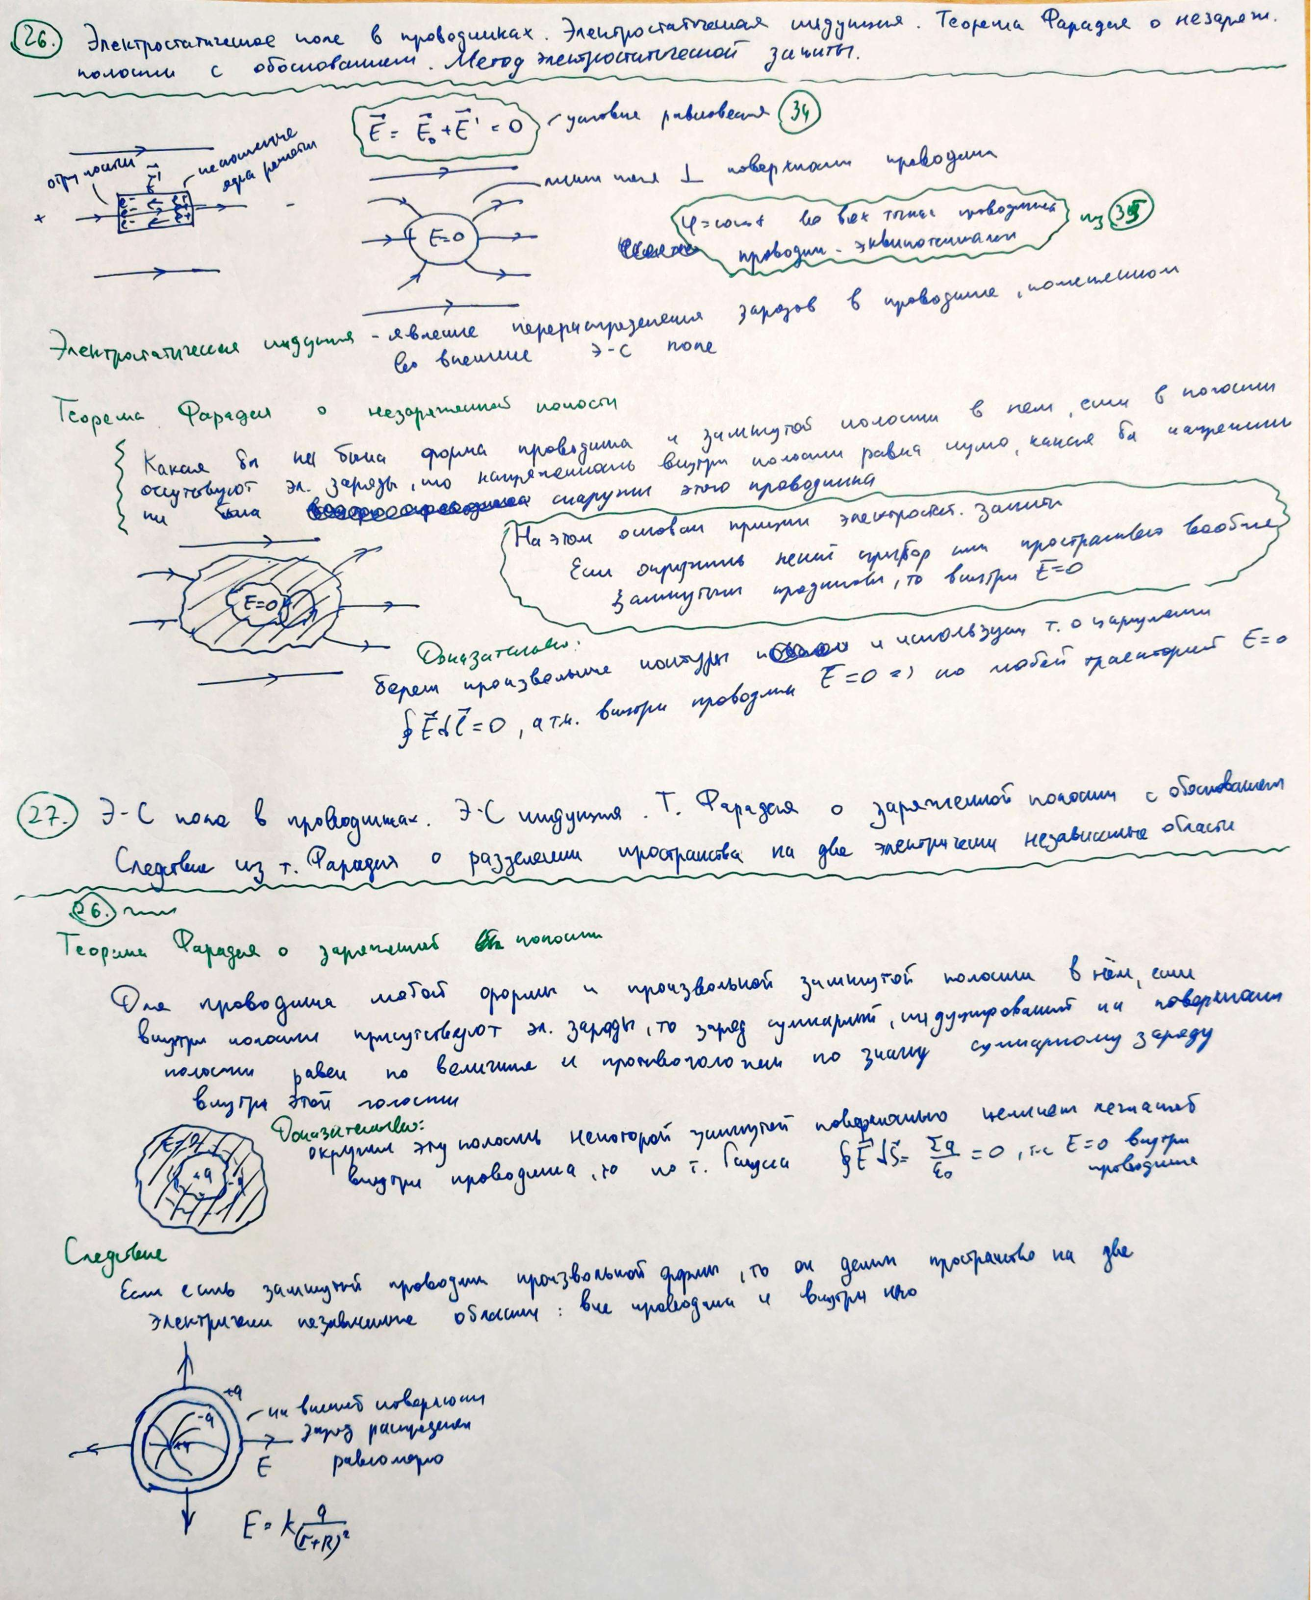 26. Электростатическое поле в проводниках. Электростатическая индукция. Теорема Фарадея о незаряж.
полости с обоснованием. Метод электростатической защиты.
E = E₀ + E' = 0 условие равновесия 34
отр. ионы
E'
ядра решётки
+
e- e- e-
-
линии поля ⊥ поверхности проводника
E=0
φ=const во всех точках проводника
проводник - эквипотенциален
из 35
Электростатическая индукция - явление перераспределения зарядов в проводнике, помещённом
во внешнее Э-С поле
Теорема Фарадея о незаряженной полости
Какая бы ни была форма проводника и замкнутой полости в нем, если в полости
отсутствуют эл. заряды, то напряженность внутри полости равна нулю, какая бы напряженн
ни была снаружи этого проводника
На этом основан принцип электростат. защиты
Если окружить некий прибор или пространство вообще
замкнутым проводником, то внутри E=0
E=0
Доказательство:
берем произвольные контуры и используем т. о циркуляции
∮E dl = 0, а т.к. внутри проводника E=0 => по любой траектории E=0
27. Э-С поле в проводниках. Э-С индукция. Т. Фарадея о заряженной полости с обоснованием
Следствие из т. Фарадея о разделении пространства на две электрически независимые области
26.
Теорема Фарадея о заряженной полости
Для проводника любой формы и произвольной замкнутой полости в нём, если
внутри полости присутствуют эл. заряды, то заряд суммарный, индуцированный на поверхности
полости равен по величине и противоположен по знаку суммарному заряду
внутри этой полости
Доказательство:
окружим эту полость некоторой замкнутой поверхностью целиком лежащей
внутри проводника, то по т. Гаусса ∮E dS = Σq/ε₀ = 0, т.к. E=0 внутри
проводника
+q -q
Следствие
Если есть замкнутый проводник произвольной формы, то он делит пространство на две
электрически независимые области: вне проводника и внутри него
+q
-q
+q
на внешней поверхности
заряд распределен
равномерно
E
E = k q/(r+R)²